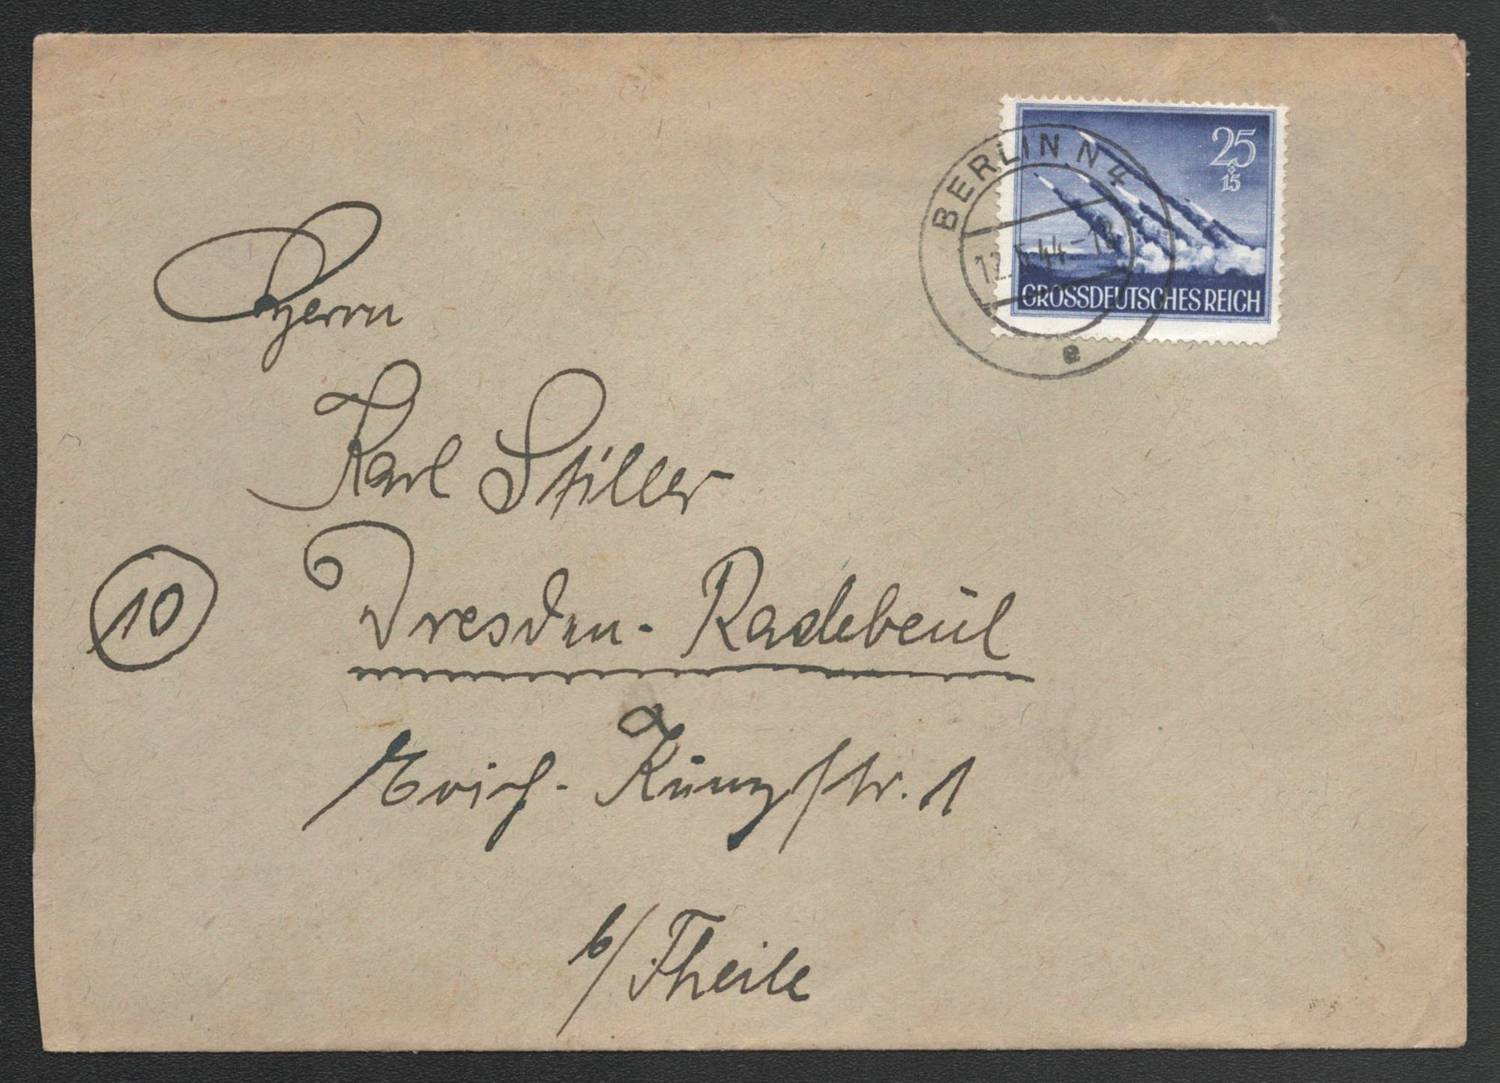 25
+
15
BERLIN N 4
12.5.44-18
GROSSDEUTSCHES REICH
e
Herrn
Karl Stiller
10
Dresden-Radebeul
Erich-Kunzstr. 1
b/Theile